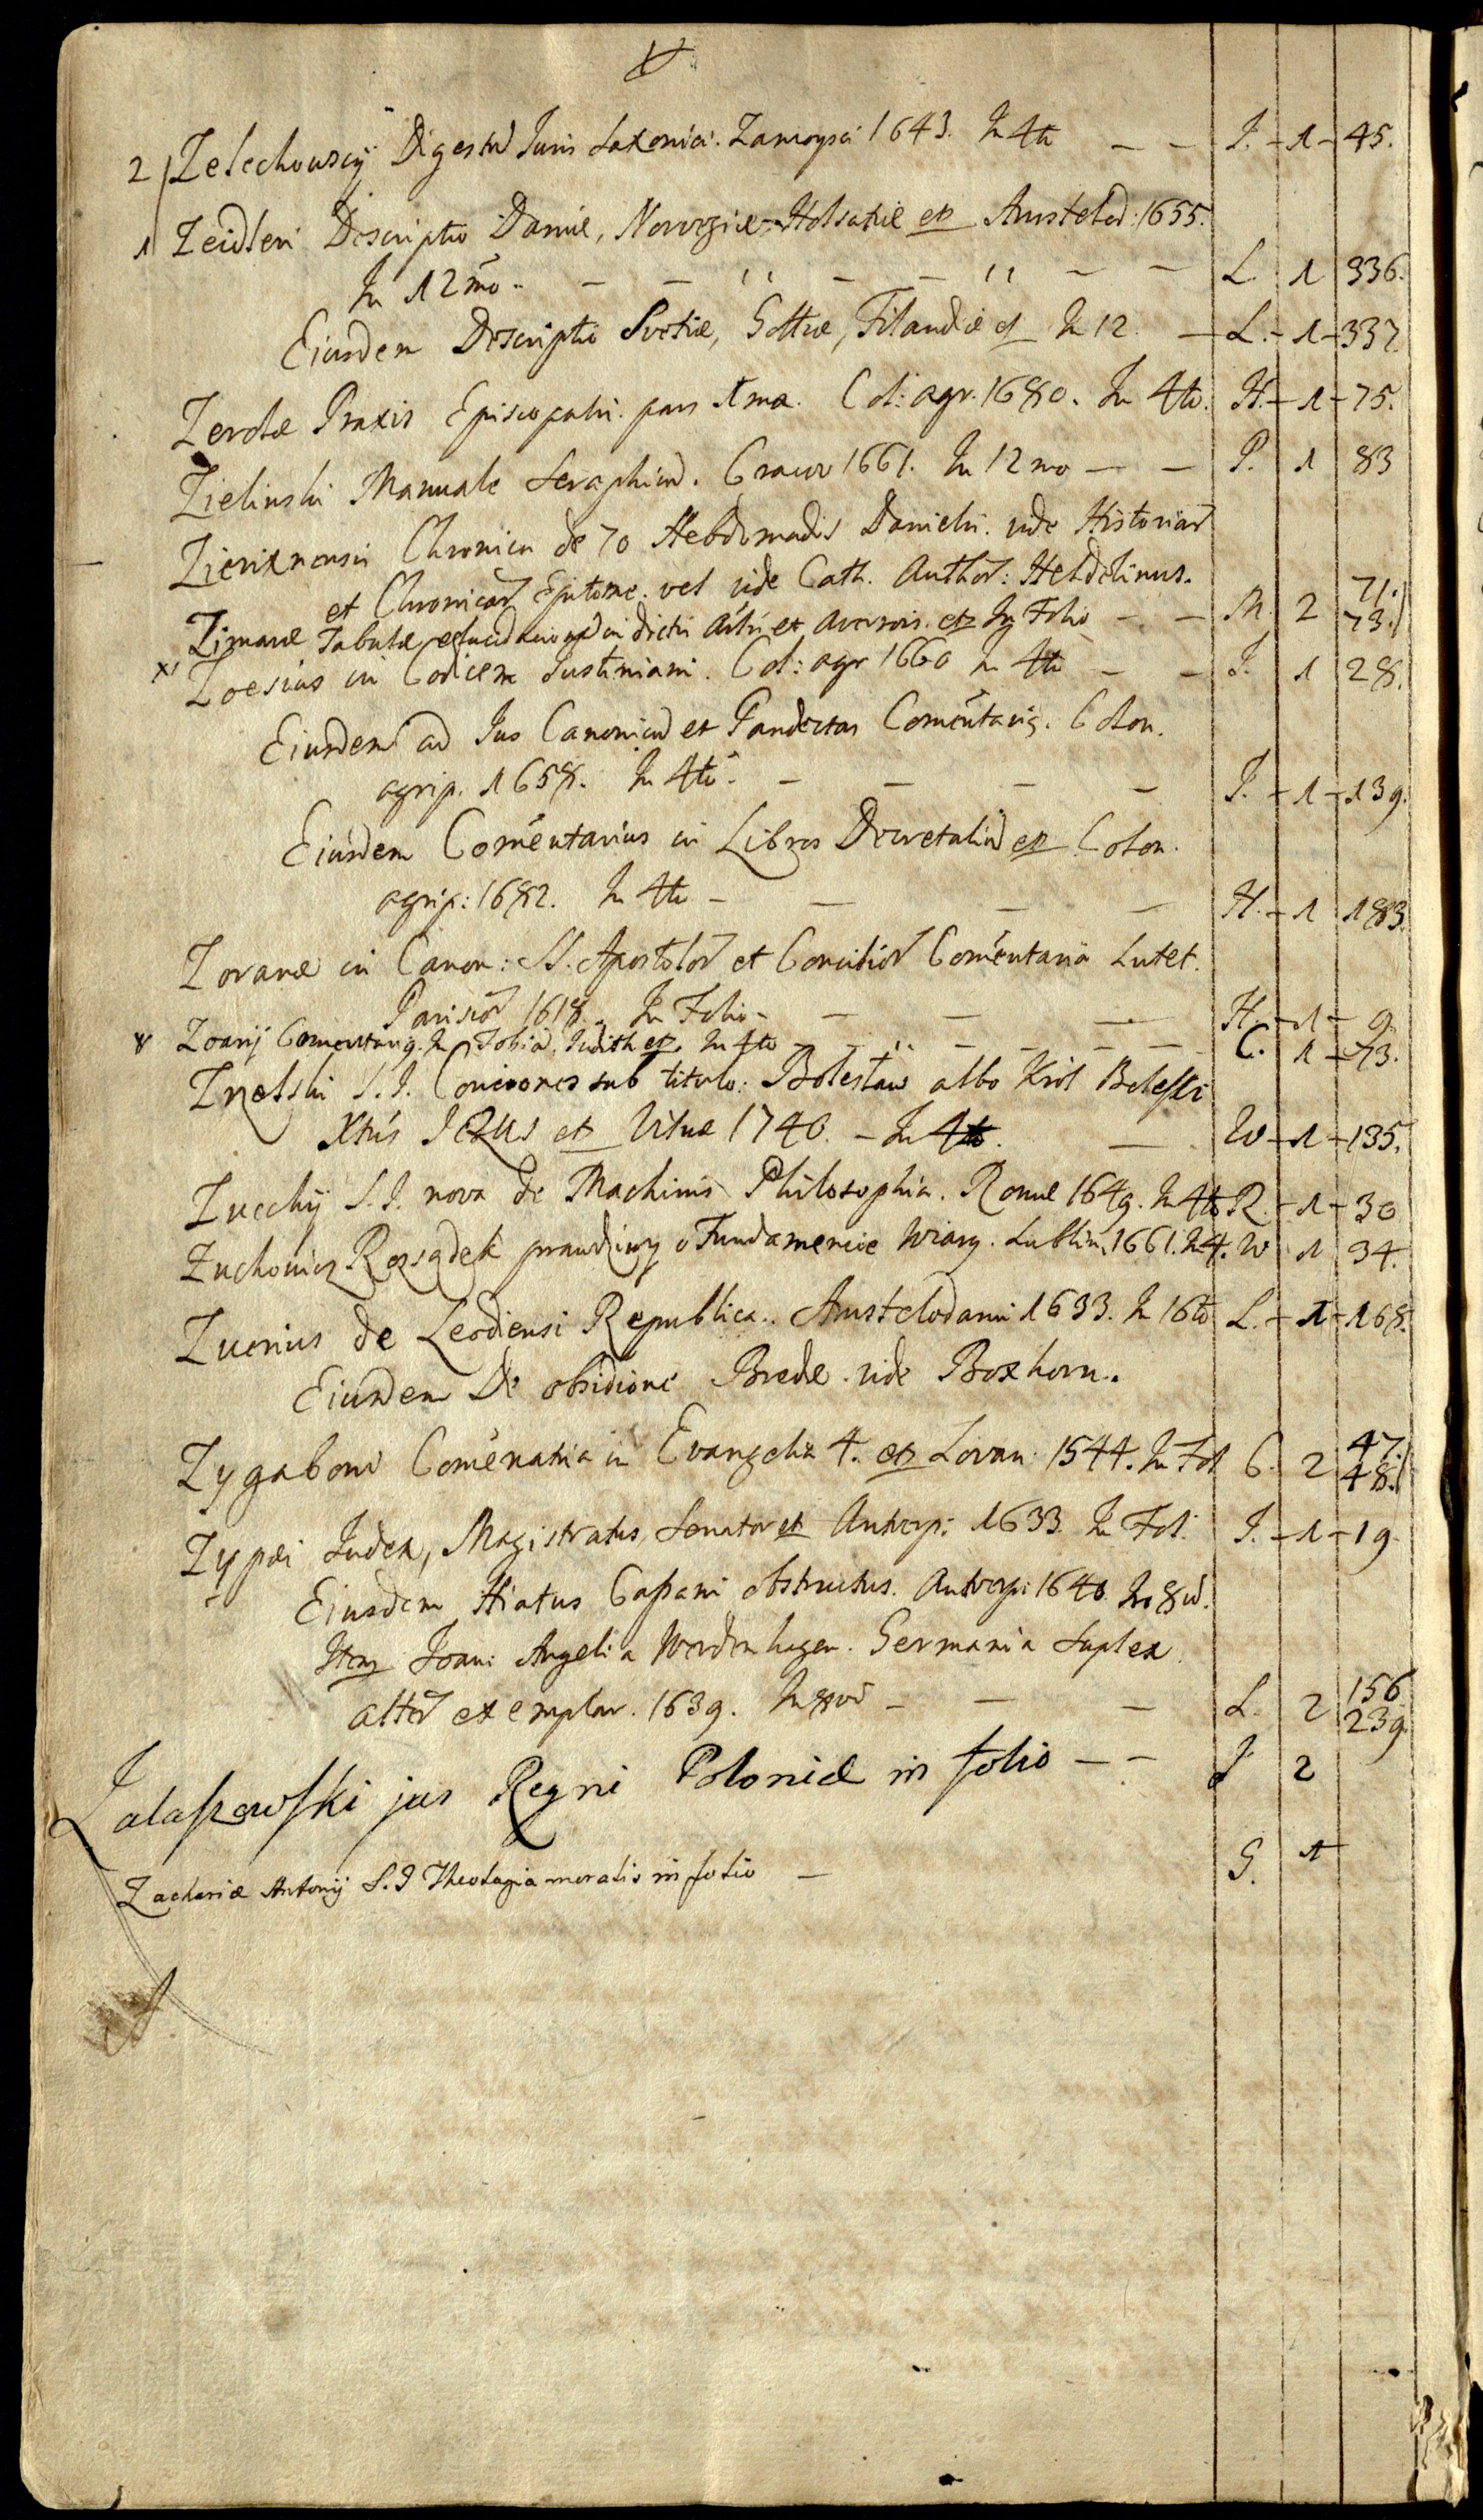 2 Zelechowscÿ Digestũ Juris Saxonici. Zamoysci 1643. In 4to — — J. - 1 - 45.
1 Zeidleri Descriptio Daniæ, Norvegiæ, Holsatiæ etc Amstelod: 1655.
In 12mo. — — — — L 1 336.
Eiusdem Descriptio Svetiæ, Gottiæ, Filandiæ et In 12. — L. - 1 - 337.
Zerolæ Praxis Episcopalis. pars 1ma. Col: agr. 1680. In 4to. H. - 1 - 75.
Zielinski Manuale Seraphicũ. Cracov 1661. In 12mo — — P. 1 83
Chronica de 70 Hebdomadis Danielis. vide Historiar
et Chronicar Epitome. vel vide Cath. Author: Heldelinus.
Zimaræ Tabulæ in dictis Aris et Averrois. etc In Folio — — M. 2 71. 73.
x Zoesius in Codicem Justiniani. Col: agr 1660 In 4to — — J. 1 28.
Eiusdem ad Jus Canonicũ et Pandectas Comẽntariq. Colon.
agrip. 1658. In 4to. — — — — J. - 1 - 139.
Eiusdem Comẽntarius in Libros Decretaliũ etc Colon.
agrip: 1682. In 4to — — — — H. - 1 183.
Zoraræ in Canon: SS. Apostolor et Concilior Comẽntaria Lutet.
Parisior 1618. In Folio — — — — H. - 1 - 9.
Zoarij Comentariq. In Tobiã, Judith etc. In 4to — — — — C. 1 - 73.
Znelski S. J. Conciones sub titulo: Bolesław albo Krol Boleſci
Xtus JEZUS et Vilnæ 1740. — In 4to. — W - 1 - 135.
Zucchij S. J. nova de Machinis Philosophia. Romæ 1649. In 4to R. - 1 - 30
Zuchowicz Rozsądek prawdziwy o Fundamencie Wiary. Lublin, 1661. In 4. W 1 34.
Zuerius de Leodiensi Republica. Amstelodami 1633. In 16to L. - 1 - 168.
Eiusdem De obsidione Bredæ. vide Boxhorn.
Zygaboni Comẽnatria in Evangelia 4. etc Lovan: 1544. In Fol C. 2 47. 48.
Zypæi Judex, Magistratus, Senator et Antverp: 1633 In Fol: J. - 1 - 19.
Eiusdem Hiatus Caſsani obstructus. Antverp: 1640. In 8vo.
Item Joan: Angeli a Werdenhagen. Germania Suplex
alter exemplar. 1639. In 8vo — — — L. 2 156 239.
Zalaſzowſki jus Regni Poloniæ in folio — — J 2
Zachariæ Antonij S. J Theologia moralis in folio — G. 1